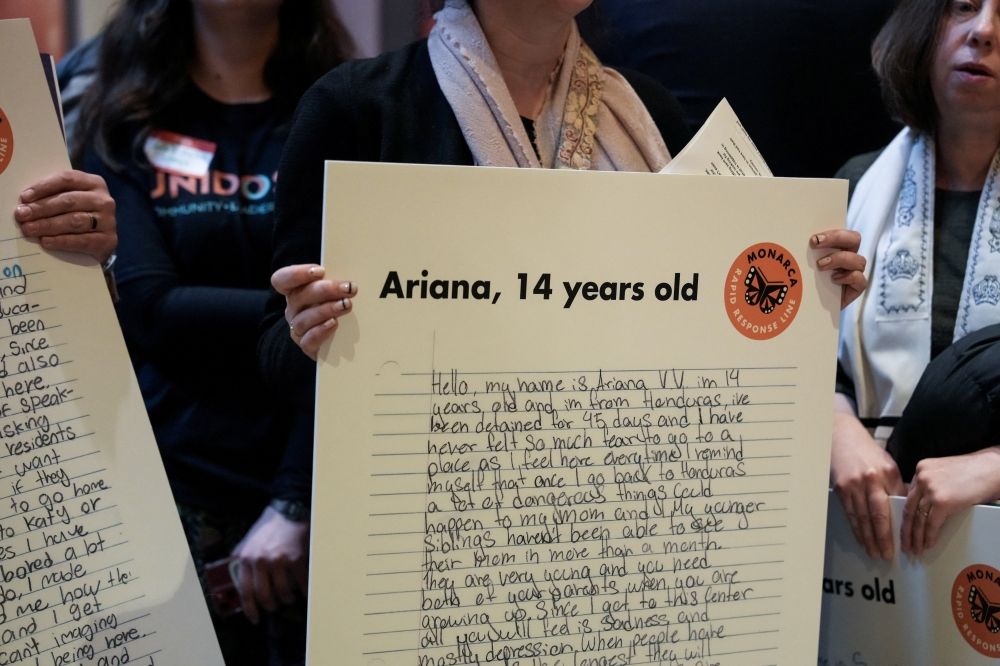 on
ind
uca-
been
, Since
d also
here.
of speak-
asking
residents
want
if they
to go home
to Katy or
es I have
bored a lot.
do, I made
d me how the
and I get
cant imaging
being here.
and
UNIDOS
Ariana, 14 years old
MONARCA
RAPID RESPONSE LINE
Hello, my name is Ariana V.V. im 14
years old and im from Honduras, ive
been detained for 45 days and I have
never felt so much fear to go to a
place as I feel here everytime I remind
myself that once I go back to Honduras
a lot of dangerous things could
happen to my mom and I. My younger
siblings havent been able to see
their mom in more than a month.
They are very young and you need
both of your parents when you are
growing up. Since I got to this Center
all you will feel is sadness and
mostly depression, when people have
the longest they will
ars old
MONA
RAPID RESPON